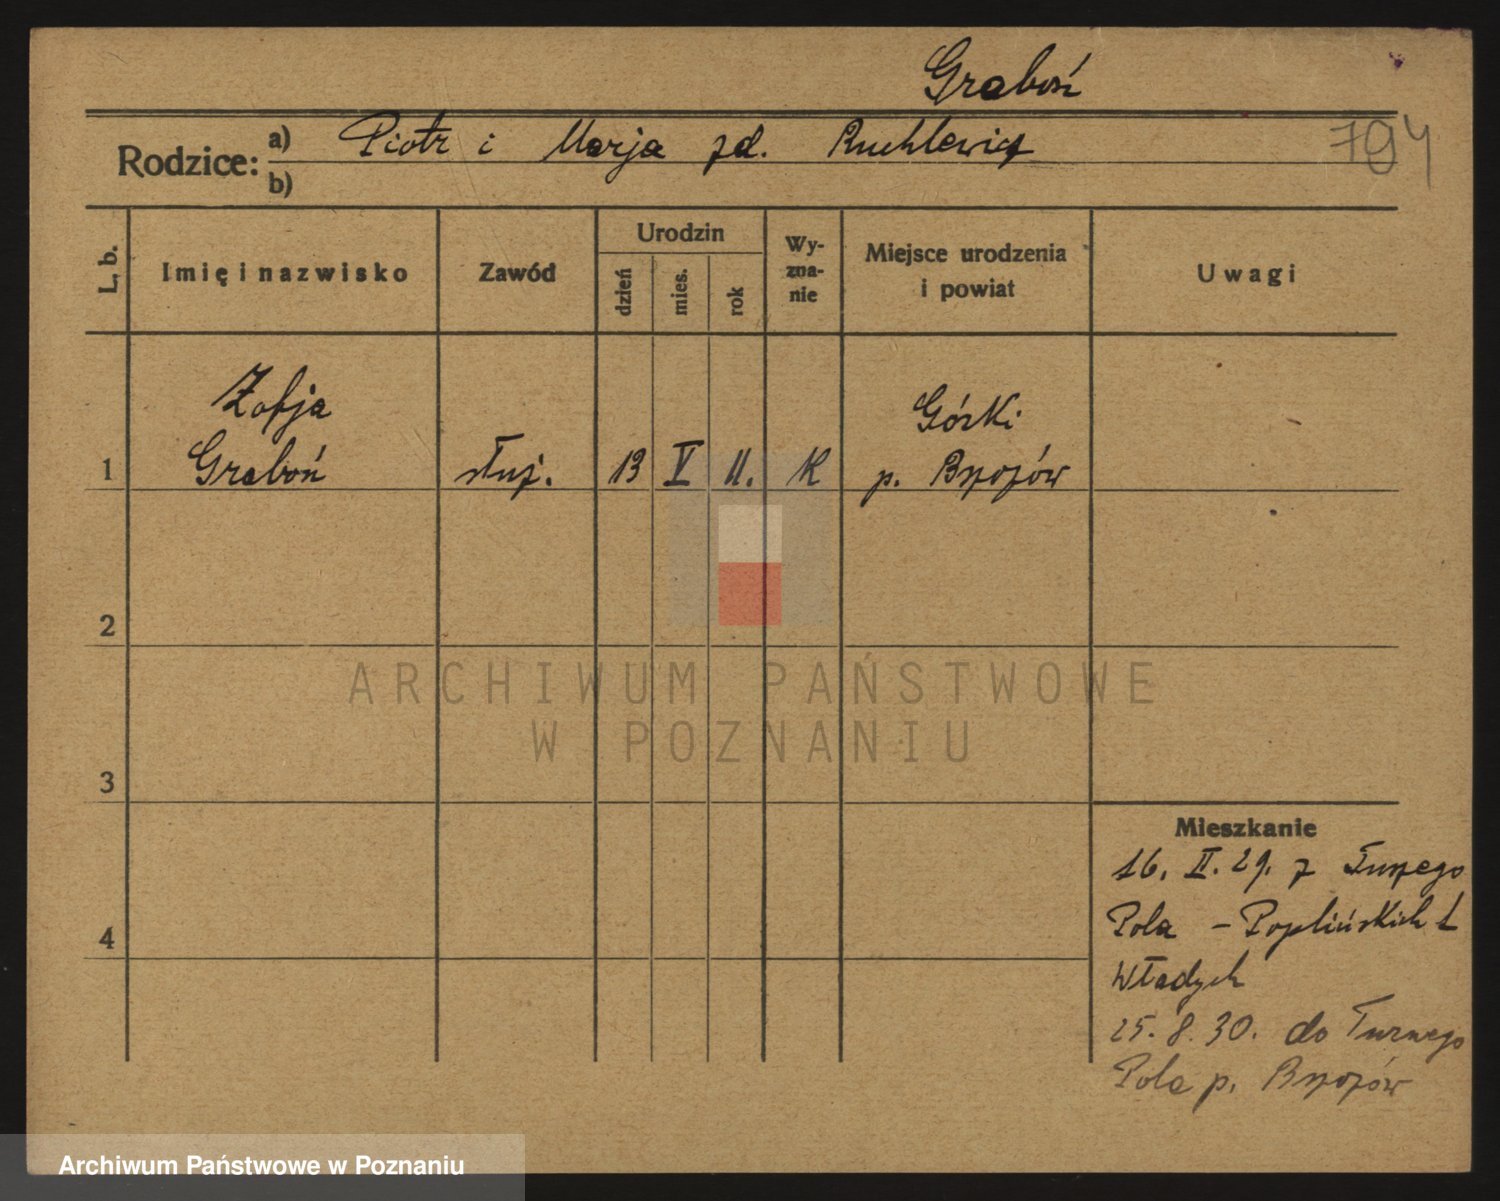 Graboń
Rodzice: a) Piotr i Marja zd. Ruchlewicz
794
b)
L. b.
Imię i nazwisko
Zawód
Urodzin
dzień
mies.
rok
Wy-
zna-
nie
Miejsce urodzenia
i powiat
Uwagi
Zofja
Górki
1 Graboń służ. 13 V 11. K p. Brzozów
2
ARCHIWUM PAŃSTWOWE
W POZNANIU
3
Mieszkanie
16. II. 29. z
Pola – Poplińskich 1
4
Władych
25. 8. 30. do
Pola p. Brzozów
Archiwum Państwowe w Poznaniu